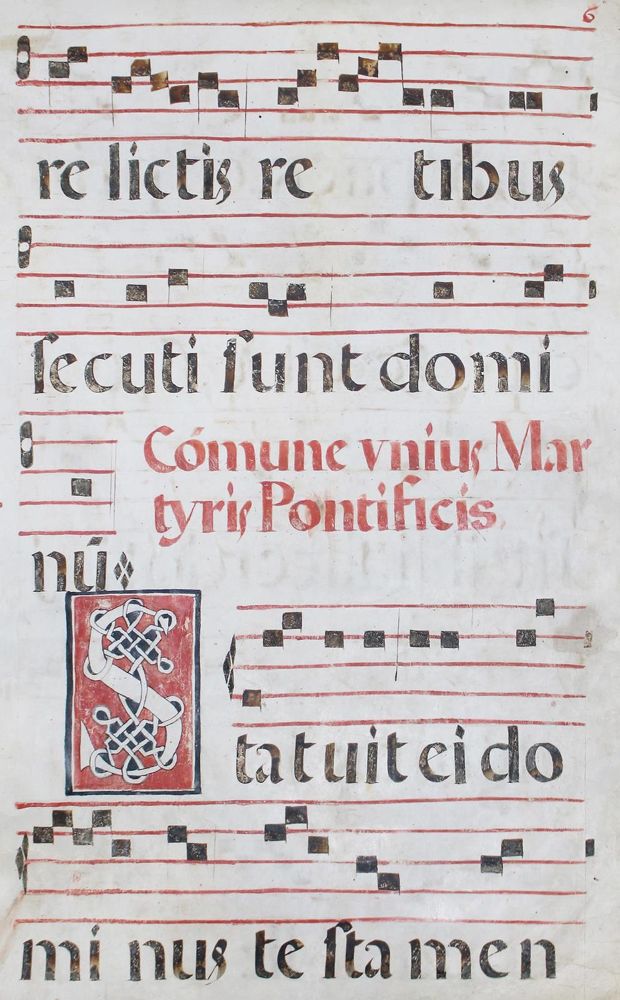 6
re lictis re tibus
ſecuti ſunt domi
Cómune vnius Mar
tyris Pontificis.
nú
S tatuit ei do
mi nus te ſta men